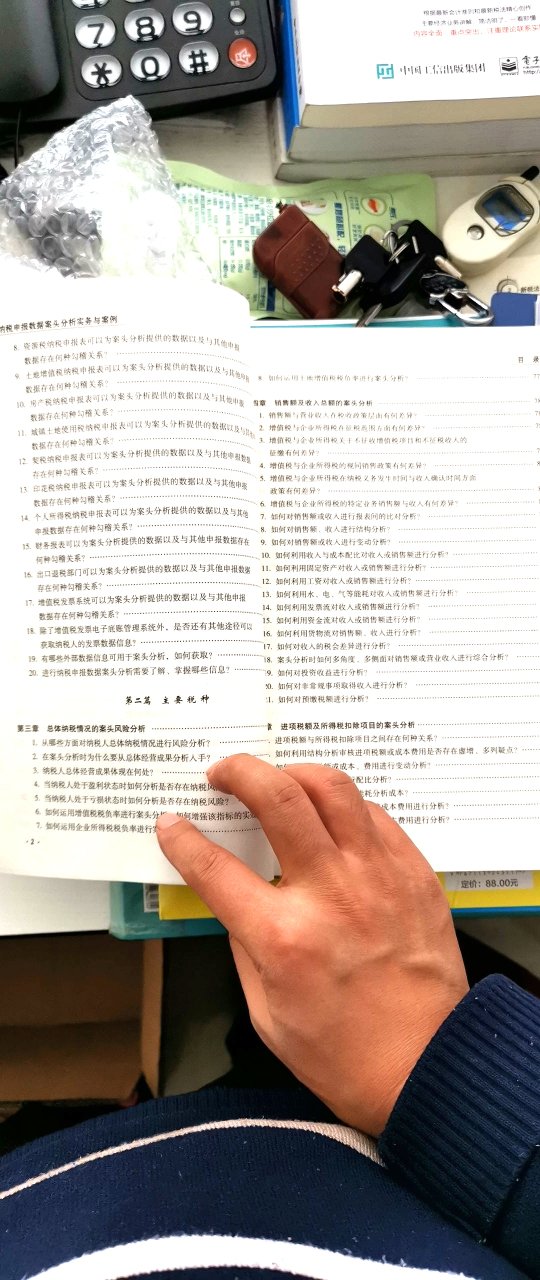 7 8 9
* 0 #
重拨
免提
根据最新会计准则和最新税法精心创作
内容全面 重点突出
中国工信出版集团
纳税申报数据案头分析实务与案例
8. 资源税纳税申报表可以为案头分析提供的数据以及与其他申报
数据存在何种勾稽关系?
9. 土地增值税纳税申报表可以为案头分析提供的数据以及与其他申报
数据存在何种勾稽关系?
10. 房产税纳税申报表可以为案头分析提供的数据以及与其他申报
数据存在何种勾稽关系?
11. 城镇土地使用税纳税申报表可以为案头分析提供的数据以及与其他
数据存在何种勾稽关系?
12. 契税纳税申报表可以为案头分析提供的数据以及与其他申报数据
存在何种勾稽关系?
13. 印花税纳税申报表可以为案头分析提供的数据以及与其他申报
数据存在何种勾稽关系?
14. 个人所得税纳税申报表可以为案头分析提供的数据以及与其他
申报数据存在何种勾稽关系?
15. 财务报表可以为案头分析提供的数据以及与其他申报数据存在
何种勾稽关系?
16. 出口退税部门可以为案头分析提供的数据以及与其他申报数据
存在何种勾稽关系?
17. 增值税发票系统可以为案头分析提供的数据以及与其他申报
数据存在何种勾稽关系?
18. 除了增值税发票电子底账管理系统外,是否还有其他途径可以
获取纳税人的发票数据信息?
19. 有哪些外部数据信息可用于案头分析,如何获取?
20. 进行纳税申报数据案头分析需要了解、掌握哪些信息?
第二篇 主要税种
第三章 总体纳税情况的案头风险分析
1. 从哪些方面对纳税人总体纳税情况进行风险分析?
2. 在案头分析时为什么要从总体经营成果分析入手?
3. 纳税人总体经营成果体现在何处?
4. 当纳税人处于盈利状态时如何分析是否存在纳税风
5. 当纳税人处于亏损状态时如何分析是否存在纳税风险?
6. 如何运用增值税税负率进行案头分析,如何增强该指标的实
7. 如何运用企业所得税税负率进行
· 2 ·
目 录
8. 如何运用土地增值税税负率进行案头分析? 77
四章 销售额及收入总额的案头分析
1. 销售额与营业收入在税收政策层面有何差异?
2. 增值税与企业所得税在征税范围方面有何差异?
3. 增值税与企业所得税关于不征收增值税项目和不征税收入的
征缴有何差异?
4. 增值税与企业所得税的视同销售政策有何差异?
5. 增值税与企业所得税在纳税义务发生时间与收入确认时间方面
政策有何差异?
6. 增值税与企业所得税的特定业务销售额与收入有何差异?
7. 如何对销售额或收入进行报表间的比对分析?
8. 如何对销售额、收入进行结构分析?
9. 如何对销售额或收入进行变动分析?
10. 如何利用收入与成本配比对收入或销售额进行分析?
11. 如何利用固定资产对收入或销售额进行分析?
12. 如何利用工资对收入或销售额进行分析?
13. 如何利用水、电、气等能耗对收入或销售额进行分析?
14. 如何利用发票流对收入或销售额进行分析?
15. 如何利用资金流对收入或销售额进行分析?
16. 如何利用货物流对销售额、收入进行分析?
17. 如何对收入的税会差异进行分析?
18. 案头分析时如何多角度、多侧面对销售额或营业收入进行综合分析?
19. 如何对投资收益进行分析?
20. 如何对非常规事项取得收入进行分析?
21. 如何对预缴税额进行分析?
章 进项税额及所得税扣除项目的案头分析
进项税额与所得税扣除项目之间存在何种关系?
如何利用结构分析审核进项税额或成本费用是否存在虚增、多列疑点?
或成本、费用进行变动分析?
配比分析?
耗分析成本?
成本费用进行分析?
用进行分析?
定价:88.00元